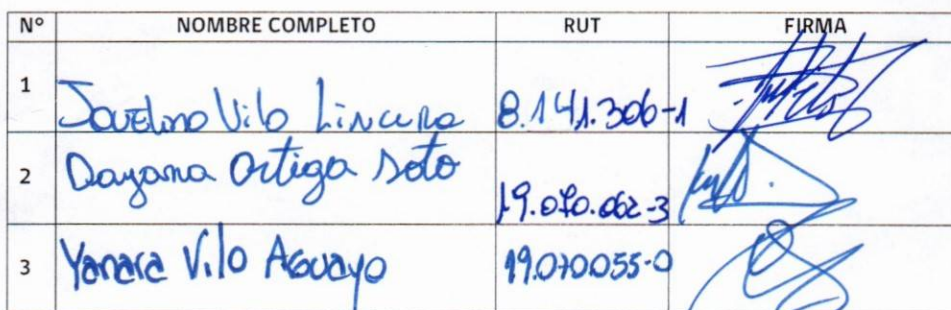 Nº NOMBRE COMPLETO RUT FIRMA
1 Jovelino Vilo Lincura 8.141.306-1
2 Dayana Ortega Soto 19.070.062-3
3 Yanara Vilo Aguayo 19.070.055-0